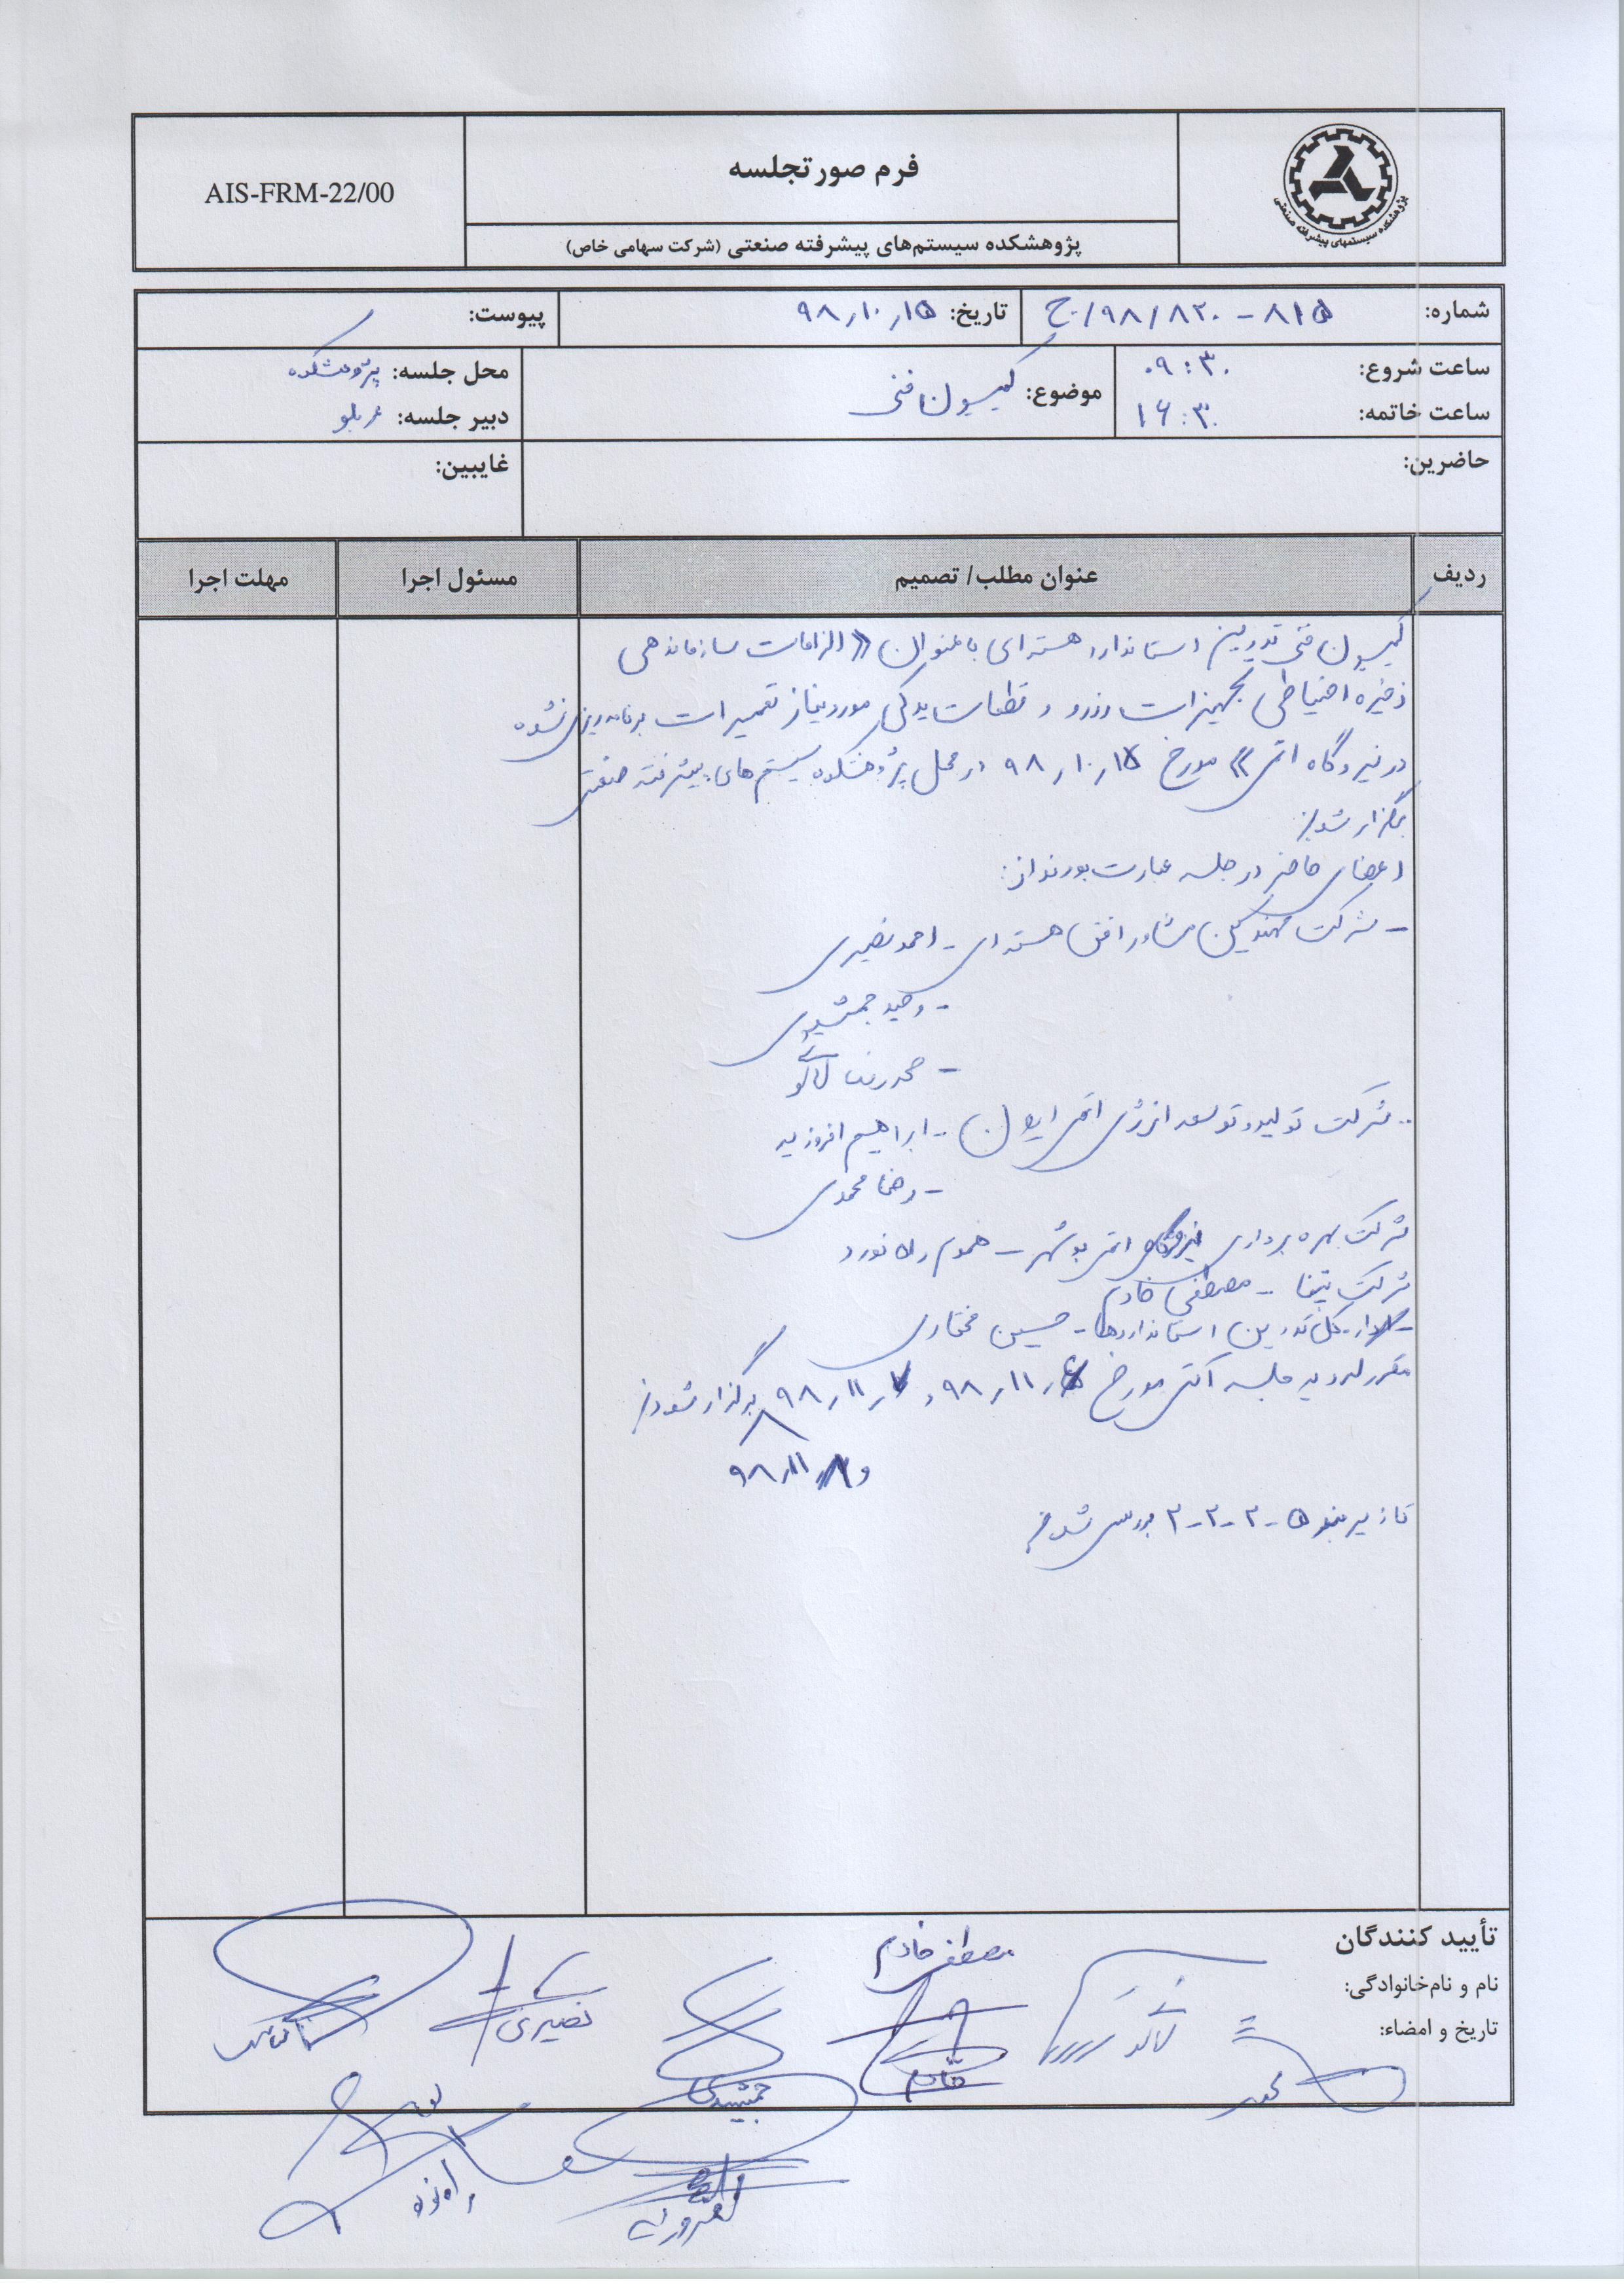 فرم صورتجلسه
AIS-FRM-22/00
پژوهشکده سیستم‌های پیشرفته صنعتی (شرکت سهامی خاص)
پژوهشکده سیستمهای پیشرفته صنعتی
شماره: ۸۱۵-۹۸/۸۲۰/ج
تاریخ: ۹۸٫۱۰٫۱۵
پیوست:
ساعت شروع: ۰۹:۳۰
ساعت خاتمه: ۱۶:۳۰
موضوع: کمیسیون فنی
محل جلسه: پژوهشکده
دبیر جلسه:
حاضرین:
غایبین:
ردیف
عنوان مطلب/ تصمیم
مسئول اجرا
مهلت اجرا
کمیسیون فنی تدوین استاندارد هسته‌ای با عنوان «الزامات سازماندهی
ذخیره احتیاطی تجهیزات رزرو و قطعات یدکی مورد نیاز تعمیرات برنامه‌ریزی نشده
در نیروگاه اتمی» مورخ ۹۸٫۱۰٫۱۵ در محل پژوهشکده سیستم‌های پیشرفته صنعتی
برگزار شد.
اعضای حاضر در جلسه عبارت بودند از:
- شرکت مهندسین مشاور افق هسته‌ای - احمد نصیری
- وحید جمشیدی
- محمدرضا
- شرکت تولید و توسعه انرژی اتمی ایران - ابراهیم
- رضا محمدی
شرکت بهره برداری نیروگاه اتمی بوشهر - راه نورد
شرکت تپنا - مصطفی خادم
- اداره کل تدوین استانداردها - حسین مختاری
مقرر گردید جلسه آتی مورخ ۹۸٫۱۱٫۶ و ۹۸٫۱۱٫۷ برگزار شود.
و ۹۸٫۱۱٫۸
تا زیر بند ۵-۲-۲-۲ بررسی شد.
تأیید کنندگان
نام و نام‌خانوادگی:
تاریخ و امضاء:
مصطفی خادم
نصیری
جمشیدی
خادم
راه نورد